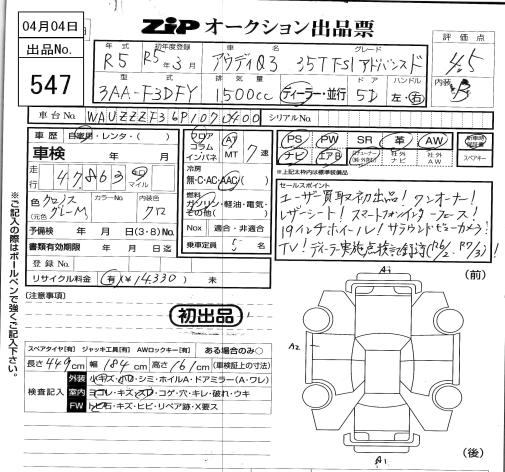 04月04日
出品No.
547
ZIP オークション出品票
年式 R5
初年度登録 R5年3月
車名 アウディQ3
グレード 35TFSI アドバンスド
評価点 4.5
内装 B
型式 3AA-F3DFY
排気量 1500cc
ディーラー・並行
ドア 5D
ハンドル 左・右
車台No. WAUZZZF36P1070400
シリアルNo.
車歴 自家用・レンタ・( )
車検 年 月
走行 47,863 km マイル
色 クロノスグレーM (元色)
カラーNo.
内装色 クロ
予備検 年 月 日(3・8)No.
書類有効期限 年 月 日迄
登録No.
リサイクル料金 有(¥14,330) 未
フロア コラム インパネ
AT MT 7速
冷房 無・C・AC・AAC( )
燃料 ガソリン・軽油・電気・その他( )
Nox 適合・非適合
乗車定員 5名
PS PW SR 革 AW
ナビ エアB 社外ナビ 社外AW
スペアキー
※上記太枠内は標準装備品
セールスポイント
ユーザー買取初出品！ワンオーナー！
レザーシート！スマートフォンインターフェース！
19インチホイール！サラウンドビューカメラ！
TV！ディーラー実施点検記録簿(R6/2. R7/3)！
※ご記入の際はボールペンで強くご記入下さい。
(注意事項)
初出品
(前)
A1
A2
A1
(後)
スペアタイヤ[有] ジャッキ工具[有] AWロックキー[有] ある場合のみ○
長さ449cm 幅184cm 高さ161cm (車検証上の寸法)
検査記入
外装 小キズ・小凹・シミ・ホイルA・ドアミラー(A・ワレ)
室内 ヨゴレ・キズ・スレ・コゲ・穴・キレ・破れ・ウキ
FW トビ石・キズ・ヒビ・リペア跡・X要ス